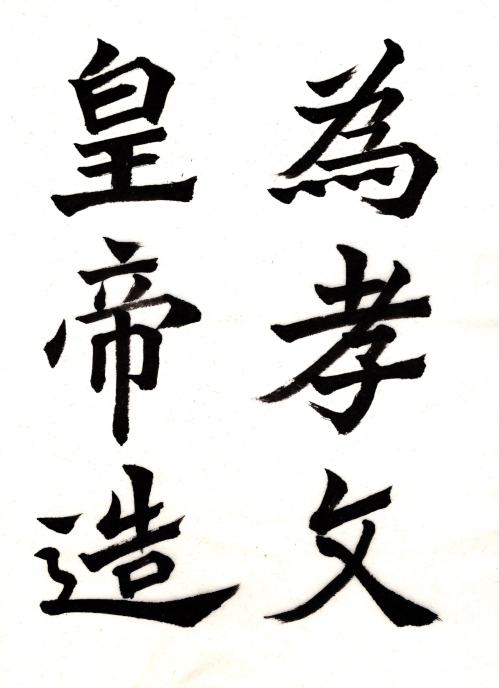 為孝文
皇帝造